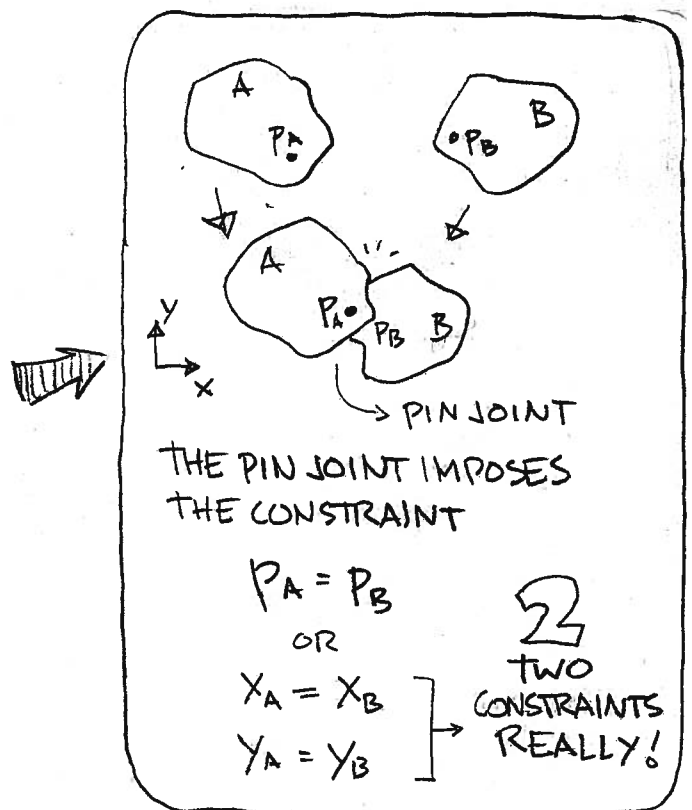 A
PA
B
PB
A
PA
PB
B
y
x
PIN JOINT
THE PIN JOINT IMPOSES
THE CONSTRAINT
PA = PB
OR
XA = XB
YA = YB
2
TWO
CONSTRAINTS
REALLY!